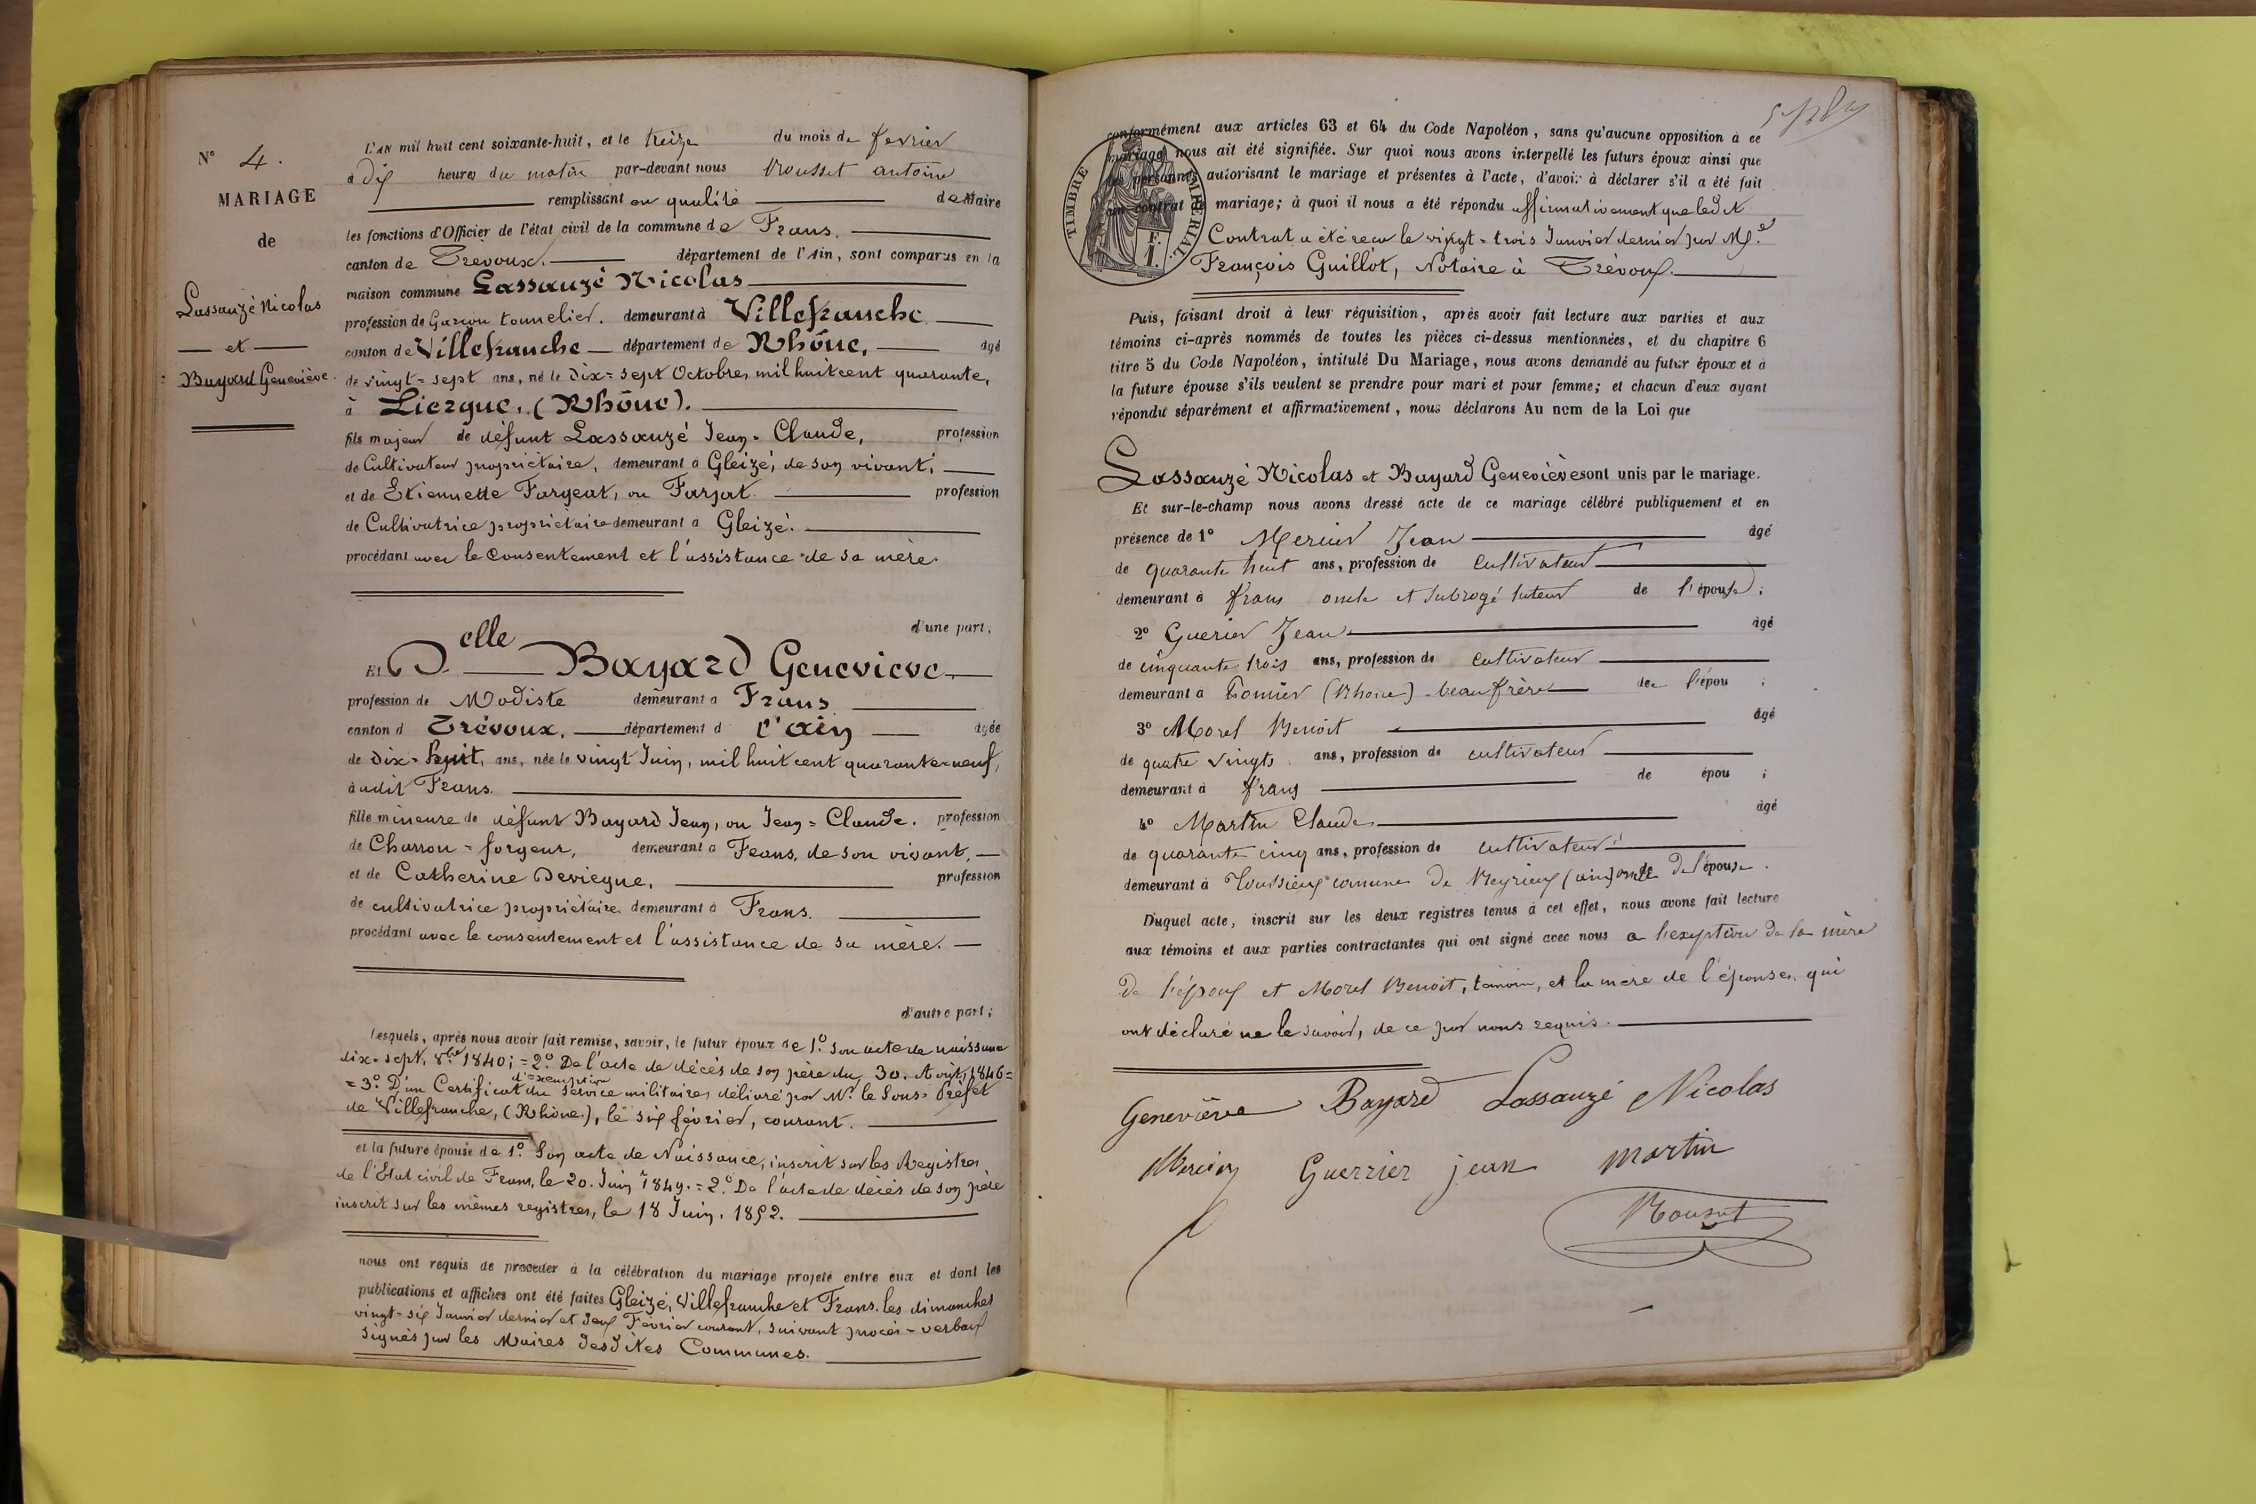 N° 4.
MARIAGE
de
Lassauzé Nicolas
et
Bayard Geneviève.
L'AN mil huit cent soixante-huit, et le treize du mois de fevrier
à dix heures du matin par-devant nous Rousset antoine
remplissant en qualité de Maire
les fonctions d'Officier de l'état civil de la commune de Frans.
canton de Trévoux. département de l'Ain, sont comparus en la
maison commune Lassauzé Nicolas
profession de Garçon tonnelier. demeurant à Villefranche
canton de Villefranche département de Rhône, âgé
de vingt=sept ans, né le dix=sept Octobre, mil huit cent quarante,
à Liergue, (Rhône).
fils majeur de défunt Lassauzé Jean=Claude, profession
de Cultivateur propriétaire, demeurant à Gleizé, de son vivant;
et de Etiennette Fargeat, ou Farjat. profession
de Cultivatrice propriétaire demeurant à Gleizé.
procédant avec le consentement et l'assistance de sa mère.
d'une part,
Et Delle Bayard Geneviève
profession de Modiste demeurant à Frans
canton d Trévoux. département d l'ain âgée
de Dix=huit, ans, née le vingt Juin, mil huit cent quarante=neuf,
àudit Frans.
fille mineure de défunt Bayard Jean, ou Jean=Claude. profession
de Charron=forgeur, demeurant à Frans, de son vivant,
et de Catherine Deviegue, profession
de cultivatrice propriétaire demeurant à Frans.
procédant avec le consentement et l'assistance de sa mère.
d'autre part;
Lesquels, après nous avoir fait remise, savoir, le futur époux de 1°. Son acte de naissance
dix=sept, 8bre 1840; =2°. De l'acte de décès de son père du 30. Août 1846=
d'exemption
=3°. D'un Certificat du service militaire, délivré par Mr. le Sous-Préfet
de Villefranche, (Rhône.), le six février, courant.
et la future épouse de 1°. Son acte de Naissance, inscrit sur les Registres
de l'Etat civil de Frans, le 20. Juin 1849.=2°. De l'acte de décès de son père
inscrit sur les mêmes registres, le 18 Juin. 1852.
nous ont requis de procéder à la célébration du mariage projeté entre eux et dont les
publications et affiches ont été faites Gleizé, Villefranche et Frans. les dimanches
vingt=six Janvier dernier et deux Février courant, suivant procès=verbaux
signés par les Maires desdites Communes.
conformément aux articles 63 et 64 du Code Napoléon, sans qu'aucune opposition à ce
mariage nous ait été signifiée. Sur quoi nous avons interpellé les futurs époux ainsi que
les personnes autorisant le mariage et présentes à l'acte, d'avoir à déclarer s'il a été fait
un contrat de mariage; à quoi il nous a été répondu affirmativement que ledit
Contrat a été reçu le vingt=trois Janvier dernier par Me.
François Guillot, Notaire à Trévoux.
TIMBRE IMPERIAL.
F.
1.
Puis, faisant droit à leur réquisition, après avoir fait lecture aux parties et aux
témoins ci-après nommés de toutes les pièces ci-dessus mentionnées, et du chapitre 6
titre 5 du Code Napoléon, intitulé Du Mariage, nous avons demandé au futur époux et à
la future épouse s'ils veulent se prendre pour mari et pour femme; et chacun d'eux ayant
répondu séparément et affirmativement, nous déclarons Au nom de la Loi que
Lassauzé Nicolas et Bayard Geneviève sont unis par le mariage.
Et sur-le-champ nous avons dressé acte de ce mariage célébré publiquement et en
présence de 1° Mercier Jean âgé
de quarante huit ans, profession de cultivateur
demeurant à frans oncle et subrogé tuteur de l'épouse;
2° Guerier Jean âgé
de cinquante trois ans, profession de cultivateur
demeurant à (Rhone) beaufrère de l'épou ;
3° Morel Benoit âgé
de quatre vingts ans, profession de cultivateur
demeurant à frans de épou ;
4° Martin Claude âgé
de quarante cinq ans, profession de cultivateur
demeurant à Toussieux comune de Reyrieux (ain) oncle de l'épouse.
Duquel acte, inscrit sur les deux registres tenus à cet effet, nous avons fait lecture
aux témoins et aux parties contractantes qui ont signé avec nous a l'exeption de la mère
de l'époux et Morel Benoit, témoin, et la mère de l'épouse, qui
ont déclaré ne le savoir, de ce par nous requis.
Geneviève Bayard Lassauzé Nicolas
Mercier Guerrier jean martin
Rousset